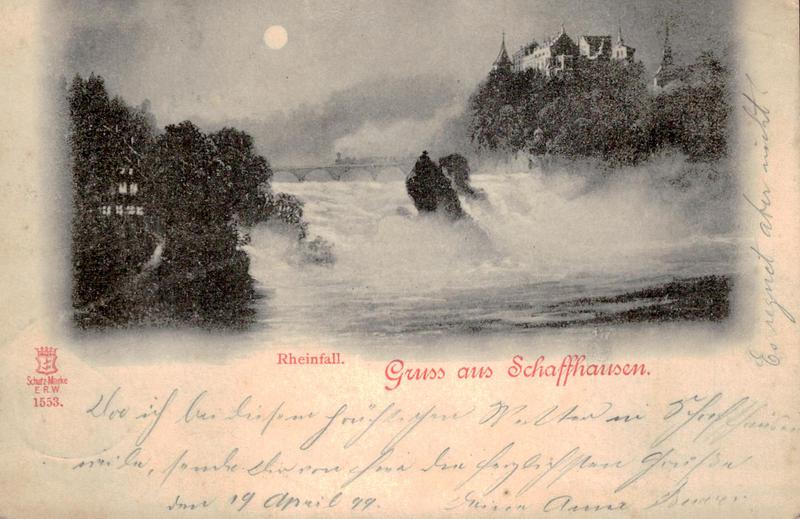 Rheinfall.
Gruss aus Schaffhausen.
Schutz-Marke
E.R.W.
1553.
Da ich bei diesem Wetter in Schaffhausen
weile, sende Dir von hier die herzlichsten Grüße
den 19 April 99. Deine Anna
Es regnet aber nicht!